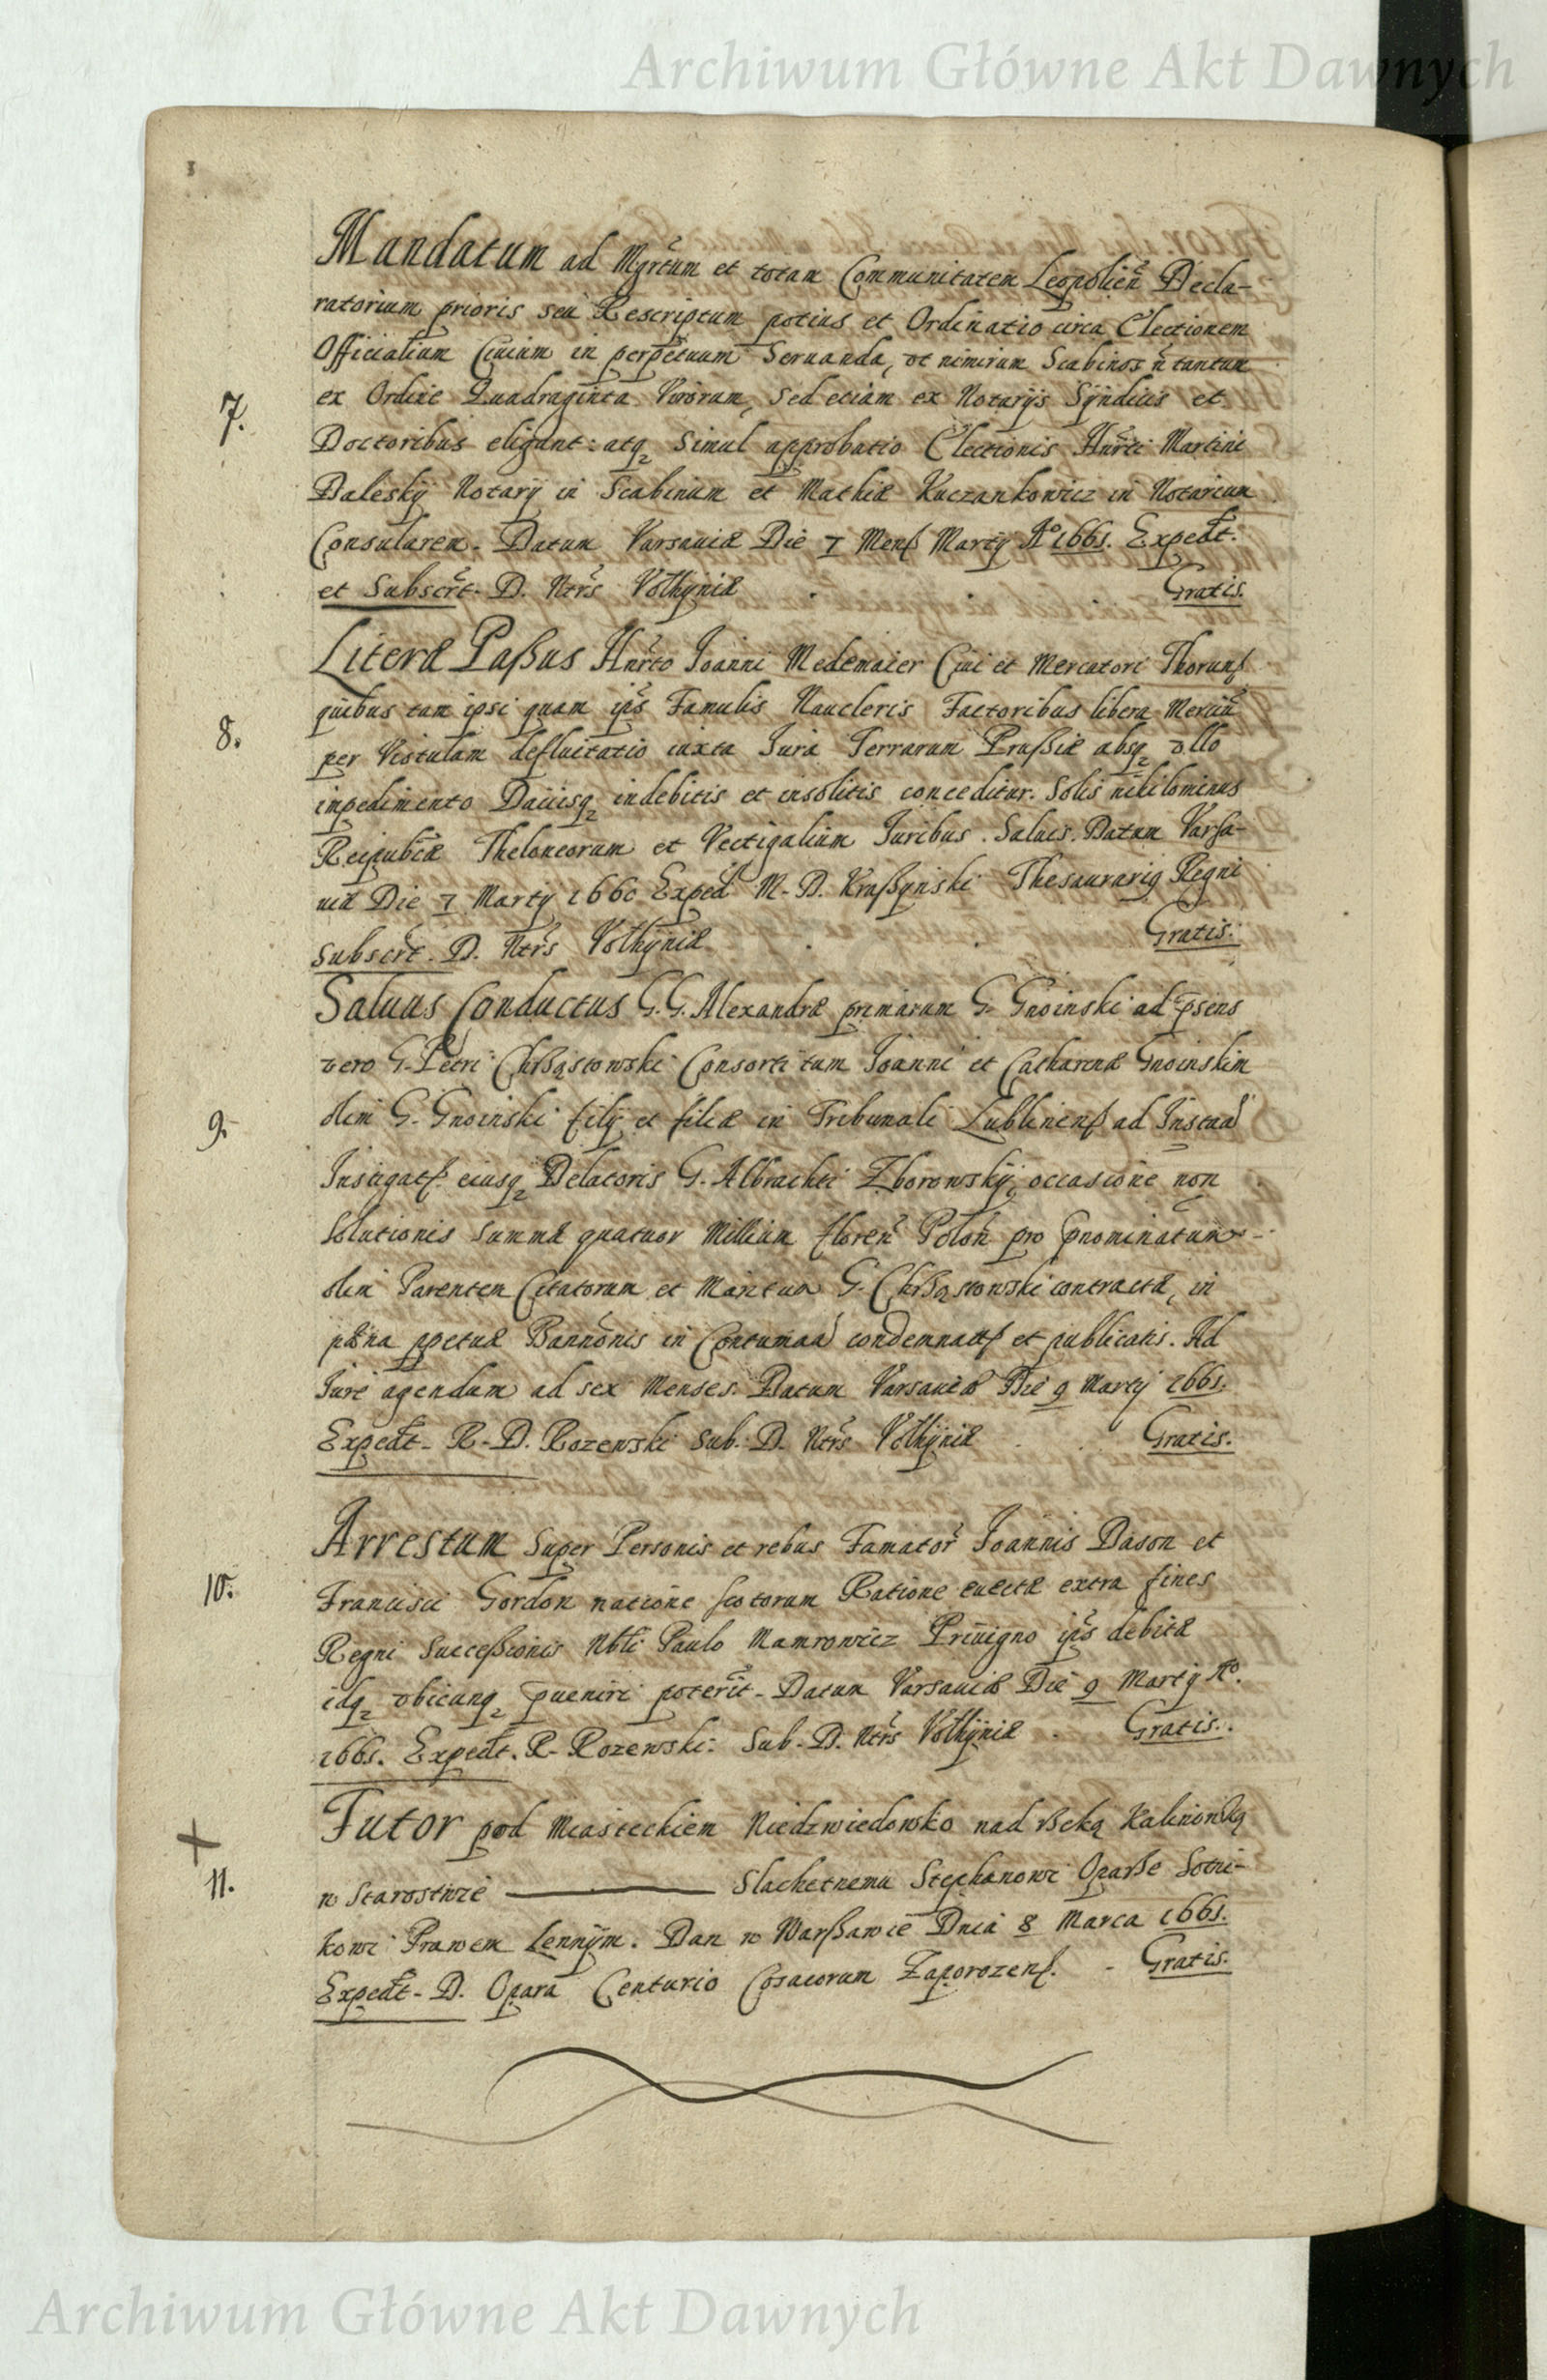 Archiwum Główne Akt Dawnych
Mandatum ad Mgrtum et totam Communitatem Leopolien Decla-
ratorium prioris seu Rescriptum potius et Ordinatio circa Electionem
Officialium Ciuium in perpetuum Seruanda, vt nimirum Scabinos n tantum
7.
ex Ordine Quadraginta Virorum, sed etiam ex Notarijs Syndicis et
Doctoribus eligant: atq simul approbatio Electionis Hnrti Martini
Dalesky Notarij in Scabinum et Mathiæ Kuczankowicz in Notarium
Consularem. Datum Varsauiæ Die 7 Mens Martij Ao 1661. Expedt.
et Subscrt. D. Ntrs Volhyniæ Gratis.
Literæ Paßus Hnrto Joanni Medemaier Ciui et Mercatori Thoruns
8.
quibus tam ipsi quam ips Famulis Naucleris Factoribus libera Merciu
per Vistulam defluitatio iuxta Jura Terrarum Prußiæ absq vllo
inpedimento Daciisq indebitis et insolitis conceditur. Solis nihilominus
Reipubcæ Theloneorum et Vectigalium Juribus. Saluis. Datum Varsa-
uiæ Die 7 Martij 1660 Exped M. D. Kraßynski Thesaurarig Regni
subscrt. D. Ntrs Volhyniæ Gratis.
Saluus Conductus G. G. Alexandræ primarum G. Gnoinski ad psens
vero G. Petri Chrßąstowski Consorti tum Joanni et Catharinæ Gnoinskim
9.
olim G. Gnoinski filij et filiæ in Tribunali Lublinens ad Instaa
Instigats eiusq Delatoris G. Albrachti Zborowskij, occasione non
solutionis summæ quatuor Millium floren Polon pro pnominatum
olim Parentem Citatorum et Maritum G. Chrßąstowski contractæ, in
pæna ppetuæ Bannonis in Contumaa condemnats et publicatis. Ad
Jure agendum ad sex Menses. Datum Varsauiæ Die 9 Martij 1661.
Expedt. R. D. Rozewski Sub. D. Ntrs Volhyniæ Gratis.
Arrestum Super Personis et rebus Famator Joannis Dason et
10.
Francisci Gordon natione scotorum Ratione euectæ extra fines
Regni Succeßionis Nbli Paulo Mamrowicz Priuigno ips debitæ
idq vbicunq pueniri poterit. Datum Varsauiæ Die 9 Martij Ao.
1661. Expedt. R. Rozewski. Sub. D. Ntrs Volhyniæ Gratis.
+
Futor pod Miasteckiem Niedzwiedowsko nad rßeką Kalinowką
11.
w Starostwie Slachetnemu Stephanowi Oparße Sotni-
kowi Prawem Lennym. Dan w Warßawie Dnia 8 Marca 1661.
Expedt. D. Opara Centurio Cosacorum Zaporozens. Gratis.
Archiwum Główne Akt Dawnych